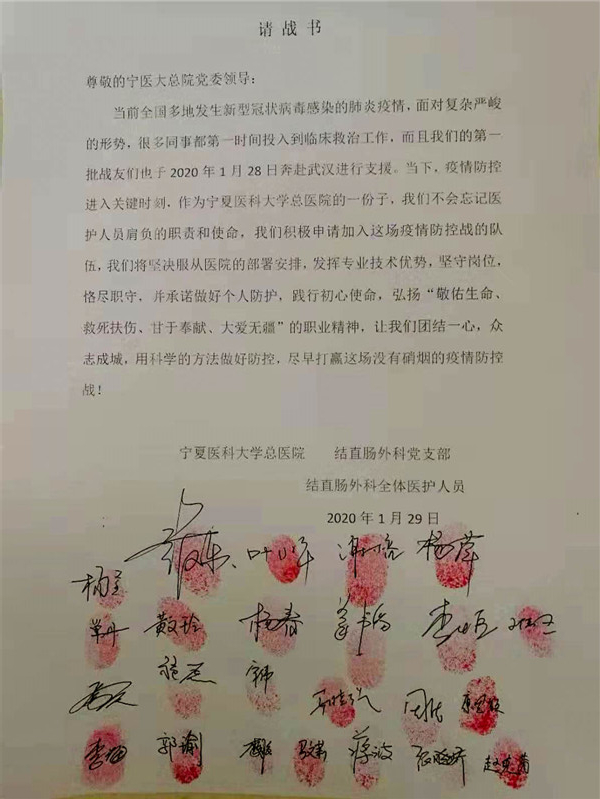 请战书
尊敬的宁医大总院党委领导：
当前全国多地发生新型冠状病毒感染的肺炎疫情，面对复杂严峻
的形势，很多同事都第一时间投入到临床救治工作，而且我们的第一
批战友们也于 2020 年 1 月 28 日奔赴武汉进行支援。当下，疫情防控
进入关键时刻，作为宁夏医科大学总医院的一份子，我们不会忘记医
护人员肩负的职责和使命，我们积极申请加入这场疫情防控战的队
伍，我们将坚决服从医院的部署安排，发挥专业技术优势，坚守岗位，
恪尽职守，并承诺做好个人防护，践行初心使命，弘扬“敬佑生命、
救死扶伤、甘于奉献、大爱无疆”的职业精神，让我们团结一心，众
志成城，用科学的方法做好防控，尽早打赢这场没有硝烟的疫情防控
战！
宁夏医科大学总医院 结直肠外科党支部
结直肠外科全体医护人员
2020 年 1 月 29 日
杨萍
黄玲 杨春
郭瑜 蒋波